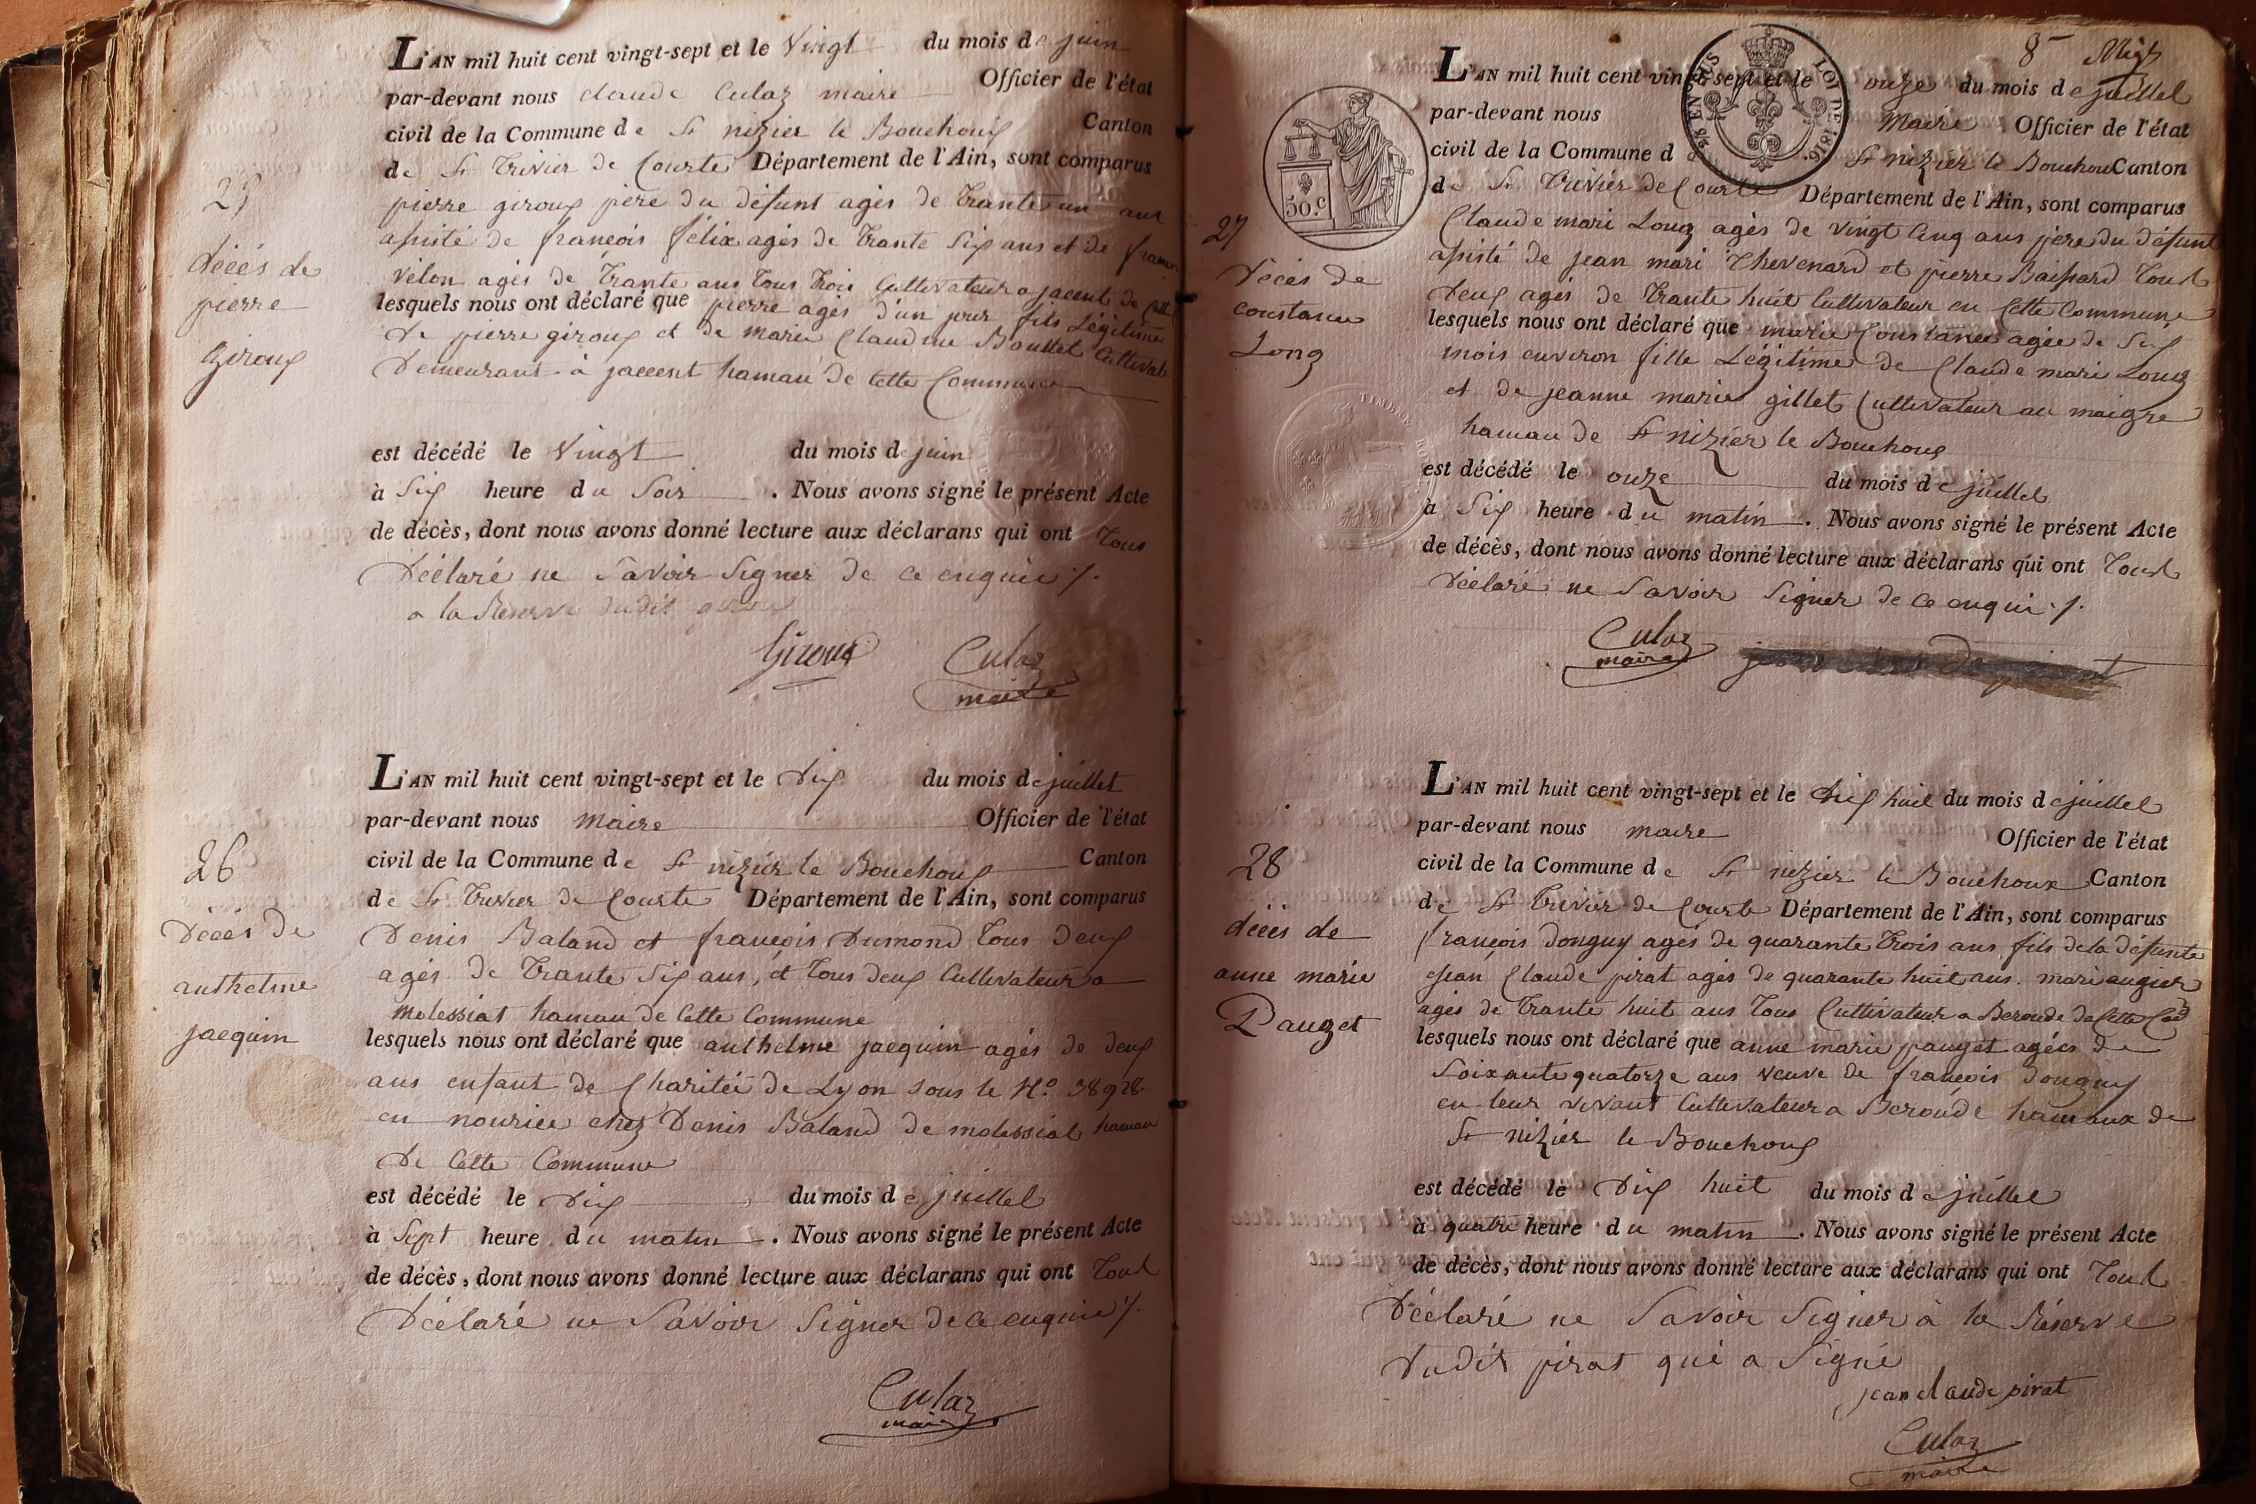 L'AN mil huit cent vingt-sept et le Vingt du mois de juin
par-devant nous claude Culaz maire Officier de l'état
civil de la Commune de St nizier le Bouchoux Canton
de St Trivier de Courte Département de l'Ain, sont comparus
25
décés de
pierre
Giroux
pierre giroux père du défunt agés de Trante un ans
assisté de françois félix agés de Trante Six ans et de
vélon agés de Trante ans Tous Trois Cultivateur a jacent de
lesquels nous ont déclaré que pierre agés d'un jour fils Légitime
de pierre giroux et de marie Claudine Boullet
Demeurant à jacent hamau de Cette Commune
est décédé le Vingt du mois de juin
à Six heure du Soir . Nous avons signé le présent Acte
de décès, dont nous avons donné lecture aux déclarans qui ont Tous
Déclaré ne Savoir Signer de ce enquie ./.
a la Réserve dudit giroux
Giroux Culaz
maire
L'AN mil huit cent vingt-sept et le Dix du mois de juillet
par-devant nous maire Officier de l'état
civil de la Commune de St nizier le Bouchoux Canton
de St Trivier de Courte Département de l'Ain, sont comparus
26
Décés de
anthelme
jacquin
Denis Baland et françois Dumond Tous Deux
agés de Trante Six ans, et Tous deux Cultivateur a
molessiat hamau de Cette Commune
lesquels nous ont déclaré que anthelme jacquin agés de deux
ans enfant de Charitée de Lyon sous le N.o 38928
en nourice chez Denis Baland de molessiat hamau
De Cette Commune
est décédé le Dix du mois de juillet
à Sept heure du matin . Nous avons signé le présent Acte
de décès, dont nous avons donné lecture aux déclarans qui ont Tous
Déclaré ne Savoir Signer de ce enquie ./.
Culaz
maire
8
50.c
LOI DE 1816.
L'AN mil huit cent vingt-sept et le onze du mois de juillet
par-devant nous maire Officier de l'état
civil de la Commune d St nizier le Bouchoux Canton
de St Trivier de Courte Département de l'Ain, sont comparus
27
Décés de
constance
Long
Claude mari Long agés de vingt Cinq ans père du défunt
assisté de jean mari Thevenard et pierre Baissard Tous
Deux agés de Trante huit Cultivateur en Cette Commune
lesquels nous ont déclaré que marie Constance agée de Six
mois environ fille Légitime de Claude mari Long
et de jeanne marie gillet Cultivateur au maigre
hamau de St nizier le Bouchoux
est décédé le onze du mois de juillet
à Six heure du matin . Nous avons signé le présent Acte
de décès, dont nous avons donné lecture aux déclarans qui ont Tous
Déclaré ne Savoir Signer de ce enquie ./.
Culaz
maire
L'AN mil huit cent vingt-sept et le Dix huit du mois de juillet
par-devant nous maire Officier de l'état
civil de la Commune de St nizier le Bouchoux Canton
de St Trivier de Courte Département de l'Ain, sont comparus
28
décés de
anne marie
Pauget
françois Donguy agés de quarante Trois ans fils de la défunte
Jean Claude pirat agés de quarante huit ans. mari augier
agés de Trante huit ans Tous Cultivateur a Beroude de Cette Coe
lesquels nous ont déclaré que anne marie pauget agées de
Soixante quatorze ans veuve de françois Donguy
en leur vivant Cultivateur a Beroude hameaux de
St nizier le Bouchoux
est décédé le Dix huit du mois de juillet
à quatre heure du matin . Nous avons signé le présent Acte
de décès, dont nous avons donné lecture aux déclarans qui ont Tous
Déclaré ne Savoir Signer à la Réserve
Dudit pirat qui a Signé
jean claude pirat
Culaz
maire